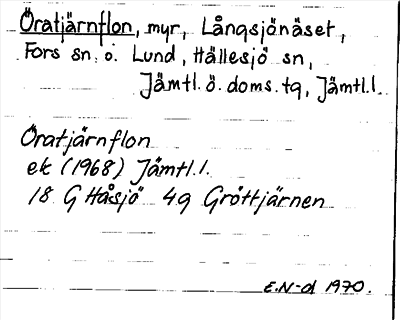 Öratjärnflon, myr, Långsjönäset,
Fors sn. o. Lund, Hällesjö sn,
Jämtl. ö. doms. tg, Jämtl. l.
Öratjärnflon
ek (1968) Jämtl. l.
18 G Håsjö 4g Gröttjärnen
E.N-d 1970.